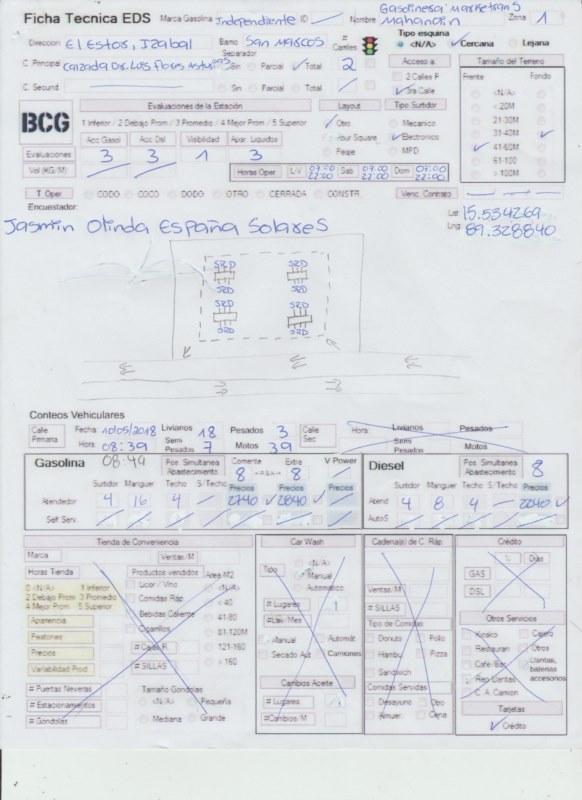 Ficha Tecnica EDS Marca Gasolina Independiente ID Nombre Gasolinera Zona 1
Direccion El Estor, Izabal Barrio San Marcos # Carriles Tipo esquina <N/A> Cercana Lejana
C. Principal Calzada Dr. Luis Flores Separador Sin Parcial Total 2 Acceso a: Tamaño del Terreno
C. Secund Sin Parcial Total 2 Calles F. 3ra Calle Frente Fondo
<N/A>
< 20M
21-30M
31-40M
41-60M
61-100
> 100M
BCG Evaluaciones de la Estación Layout Tipo Surtidor
1 Inferior / 2 Debajo Prom / 3 Promedio / 4 Mejor Prom / 5 Superior Otro Mecanico
Acc Gasol Acc Dsl Visibilidad Apar. Liquidos Your Square Electronico
Evaluaciones 3 3 1 3 Feipe MPD
Vol (KG/M) Horas Oper L-V 07:00 22:00 Sab 07:00 22:00 Dom 07:00 22:00
T Oper CODO COCO DODO OTRO CERRADA CONSTR. Venc. Contrato
Encuestador:
Jasmin Olinda España Solares
Lat 15.534269
Lng 89.328840
S2D S2D
S2D S2D
S2D S2D
S2D S2D
Conteos Vehiculares
Calle Primaria Fecha 10/05/2018 Livianos 18 Pesados 3 Calle Sec Hora: Livianos Pesados
Hora: 08:39 Semi Pesados 7 Motos 39 Semi Pesados Motos
08:44
Gasolina Pos Simultanea Abastecimiento Corriente 8 Extra 8 V Power Diesel Pos. Simultanea Abastecimiento 8
Surtidor Manguer Techo S/Techo Precios Precios Precios Surtidor Manguer Techo S/Techo Precios
Atendedor 4 16 4 2740 2840 Atend 4 8 4 2240
Self Serv. AutoS
Tienda de Conveniencia Car Wash Cadena(s) de C. Ráp. Crédito
Marca Ventas/M
Horas Tienda Productos vendidos Area M2
0 <N/A> 1 Inferior
2 Debajo Prom 3 Promedio
4 Mejor Prom 5 Superior
Apariencia
Peatones
Precios
Variabilidad Prod
# Puertas Neveras
# Estacionamientos
# Gondolas
Licor / Vino
Comidas Ráp
Bebidas Caliente
Cigarrillos
# SILLAS
<N/A>
< 40
41-80
81-120M
121-160
> 160
Tamaño Gondolas
<N/A> Pequeña
Mediana Grande
Tipo Manual
Automatico
# Lugares
Manual Automát
Secado Aut Camiones
Cambios Aceite
# Lugares
#Cambios/M
Ventas/M
# SILLAS
Tipo de Comidas
Donuts Pollo
Hambu Pizza
Sandwich
Comidas Servidas
Desayuno Otro
Almuer. Cena
% Dias
GAS
DSL
Otros Servicios
Kiosko Cajero
Restauran Otros
Cafe/Bar Llantas, baterias accesorios
Rep Llantas
C. A. Camion
Tarjetas
Crédito